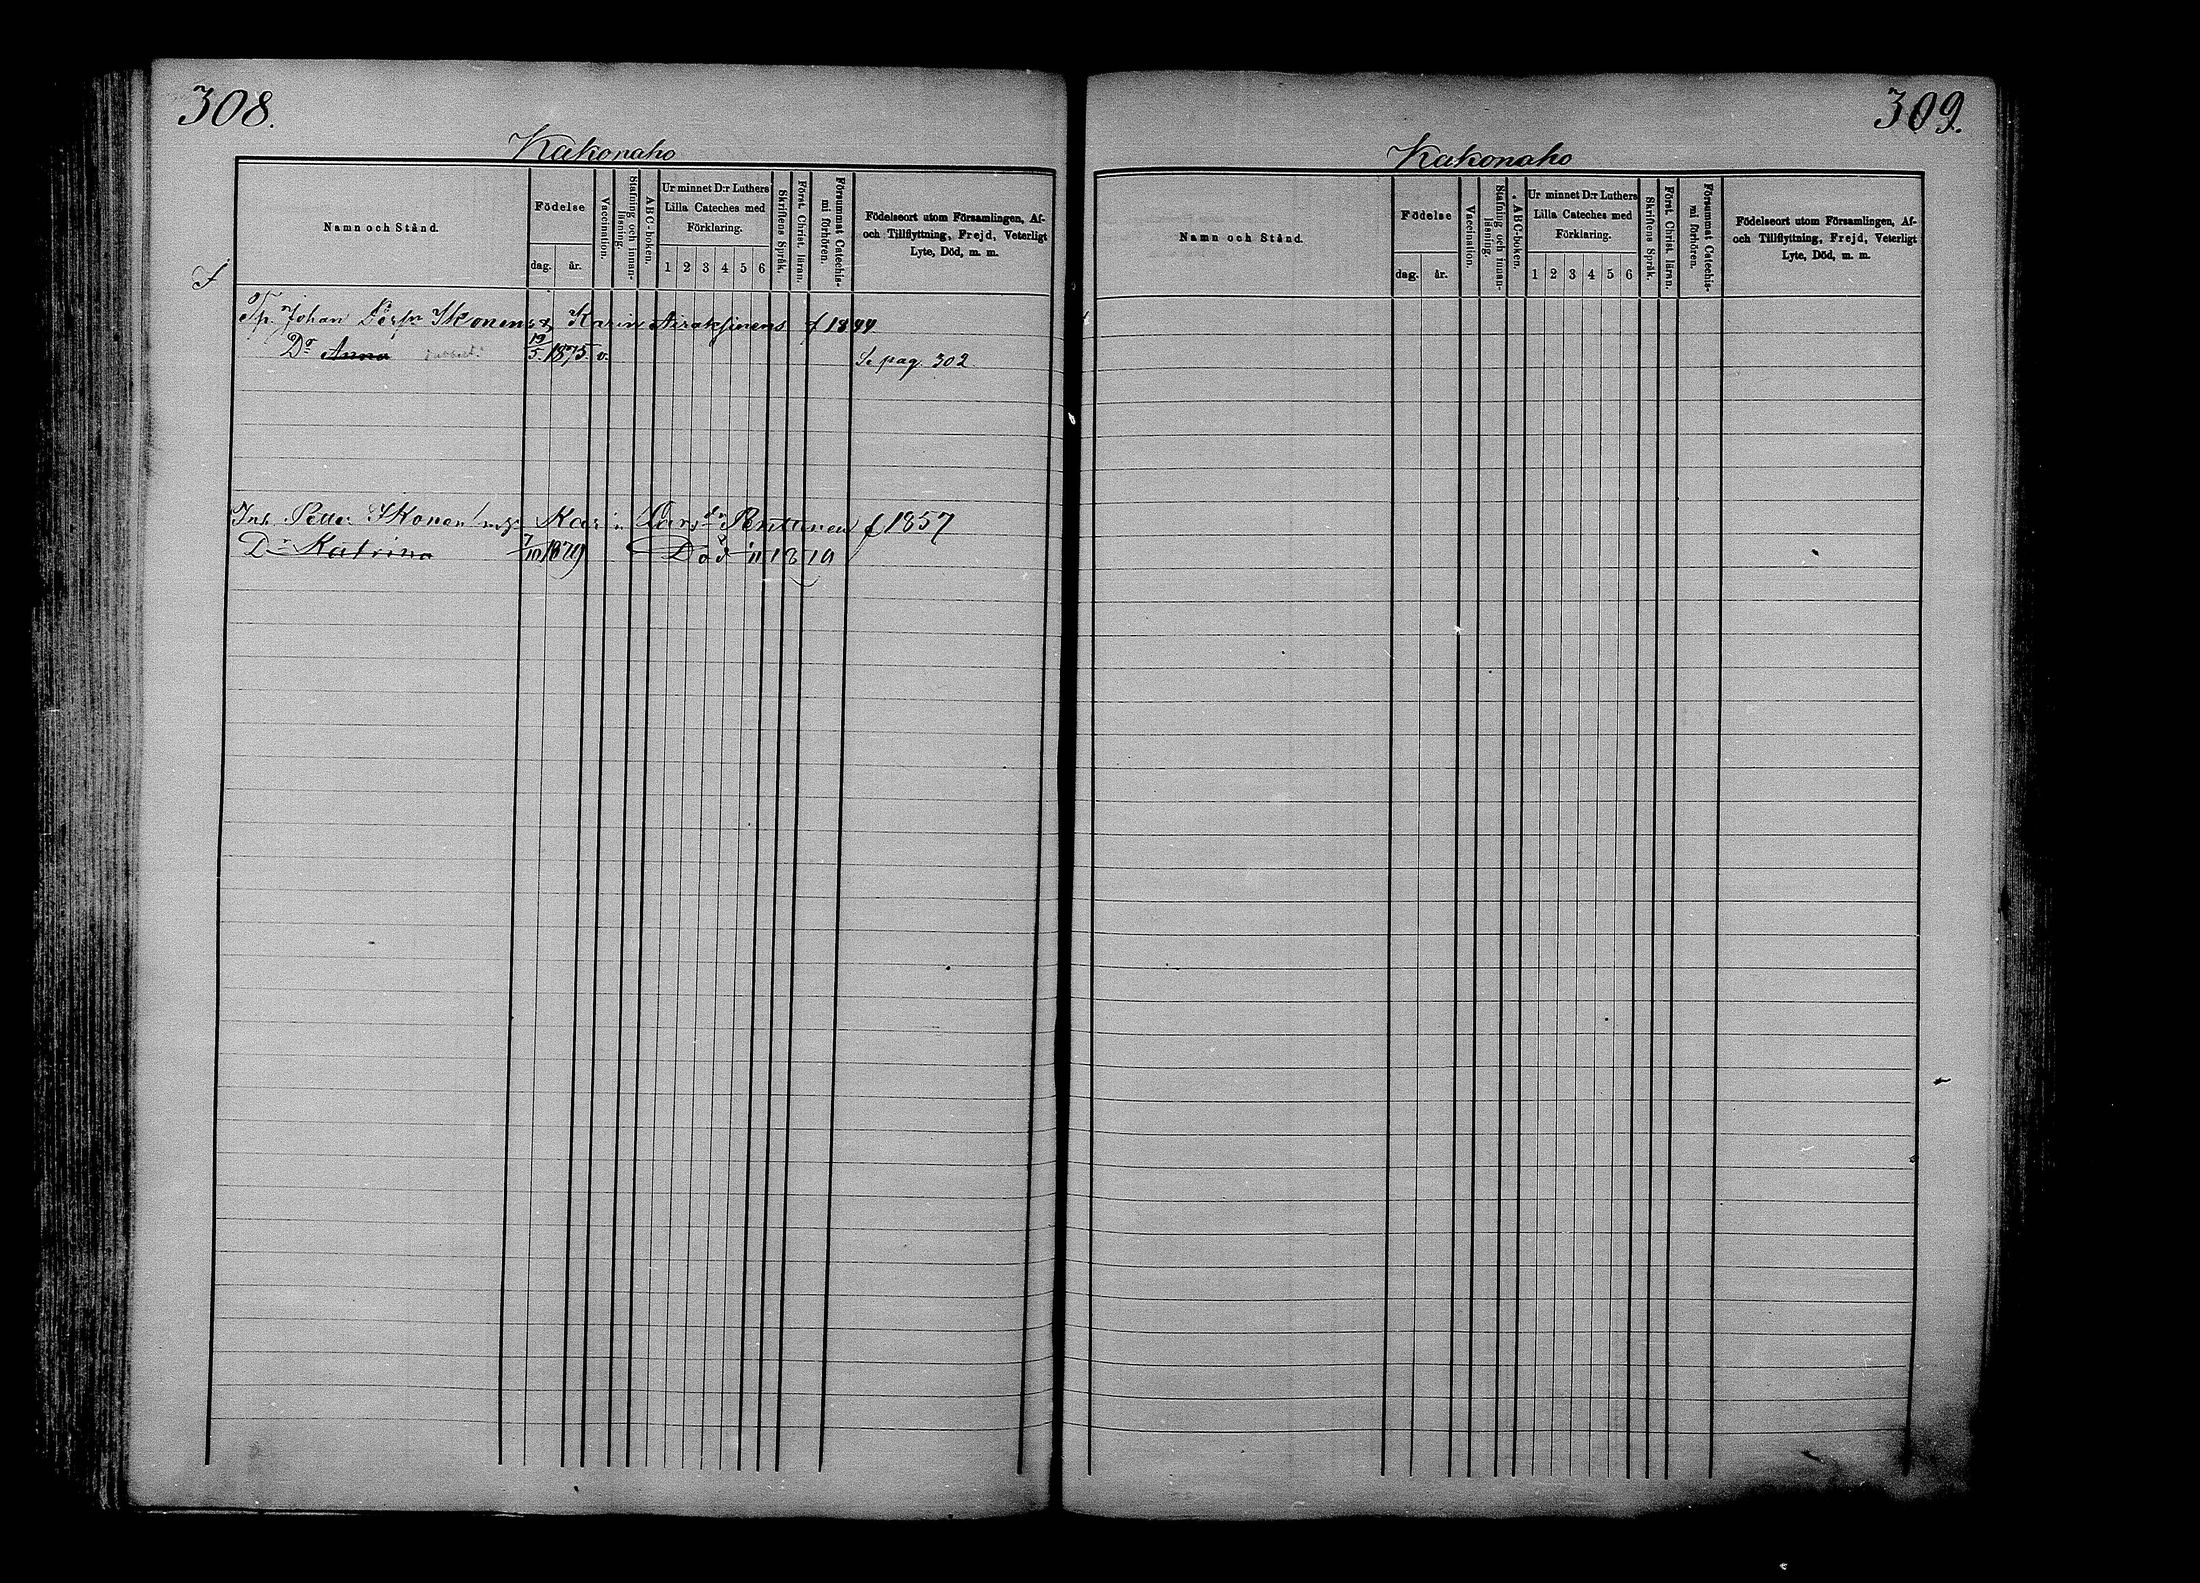 308.
Kakonaho
Namn och Stånd.
Födelse
dag.
år.
Vaccination.
Stafning och innan-
läsning.
ABC-boken.
Ur minnet D:r Luthers
Lilla Cateches med
Förklaring.
1 2 3 4 5 6
Skriftens Språk.
Först. Christ. läran.
Försummat Catechis-
mi förhören.
Födelseort utom Församlingen, Af-
och Tillflyttning, Frejd, Veterligt
Lyte, Död, m. m.
Tp. Johan Ikonens & Karin f 1844
Dr Anna 19/5 1875 v. Se pag. 302
Inh. Petter Ikonen Karin Lars dr Penttinen f 1857
Dr Katrina 7/10 1879 Död
309.
Kakonaho
Namn och Stånd.
Födelse
dag.
år.
Vaccination.
Stafning och innan-
läsning.
ABC-boken.
Ur minnet D:r Luthers
Lilla Cateches med
Förklaring.
1 2 3 4 5 6
Skriftens Språk.
Först. Christ. läran.
Försummat Catechis-
mi förhören.
Födelseort utom Församlingen, Af-
och Tillflyttning, Frejd, Veterligt
Lyte, Död, m. m.